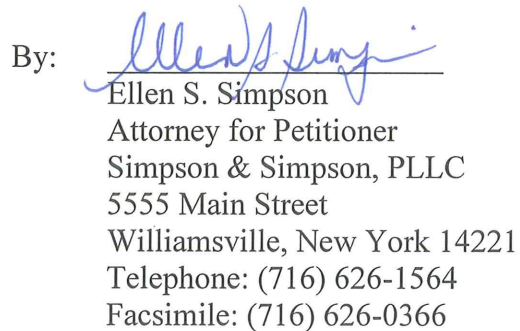 By: Ellen S Simpson
Ellen S. Simpson
Attorney for Petitioner
Simpson & Simpson, PLLC
5555 Main Street
Williamsville, New York 14221
Telephone: (716) 626-1564
Facsimile: (716) 626-0366